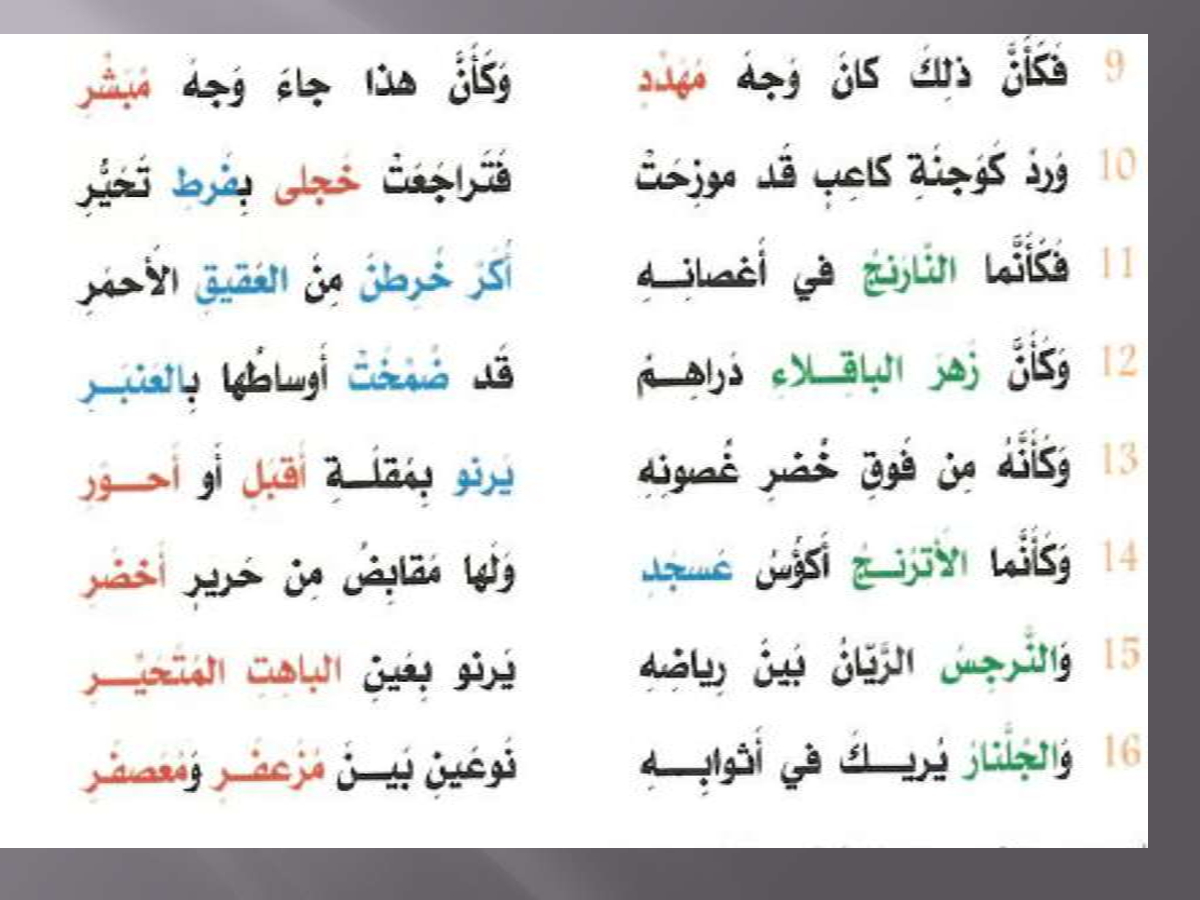 9 فَكَأَنَّ ذلِكَ كانَ وَجهَ مُهَدِّدِ وَكَأَنَّ هذا جاءَ وَجهَ مُبَشِّرِ
10 وَردٌ كَوَجنَةِ كاعِبٍ قَد موزِحَتْ فَتَراجَعَتْ خَجلى بِفَرطِ تَحَيُّرِ
11 فَكَأَنَّما النّارَنجُ في أَغصانِـهِ أُكَرٌ خُرِطنَ مِنَ العَقيقِ الأَحمَرِ
12 وَكَأَنَّ زَهرَ الباقِـلاءِ دَراهِـمٌ قَد ضُمِّخَتْ أَوساطُها بِالعَنبَـرِ
13 وَكَأَنَّهُ مِن فَوقِ خُضرِ غُصونِهِ يَرنو بِمُقلَـةِ أَقبَلٍ أَو أَحـوَرِ
14 وَكَأَنَّما الأُترُنـجُ أَكؤُسُ عَسجَدٍ وَلَها مَقابِضُ مِن حَريرٍ أَخضَرِ
15 وَالنَّرجِسُ الرَّيّانُ بَينَ رِياضِهِ يَرنو بِعَينِ الباهِتِ المُتَحَيِّـرِ
16 وَالجُلَّنارُ يُريـكَ في أَثوابِـهِ نَوعَينِ بَيـنَ مُزَعفَـرٍ وَمُعَصفَرِ